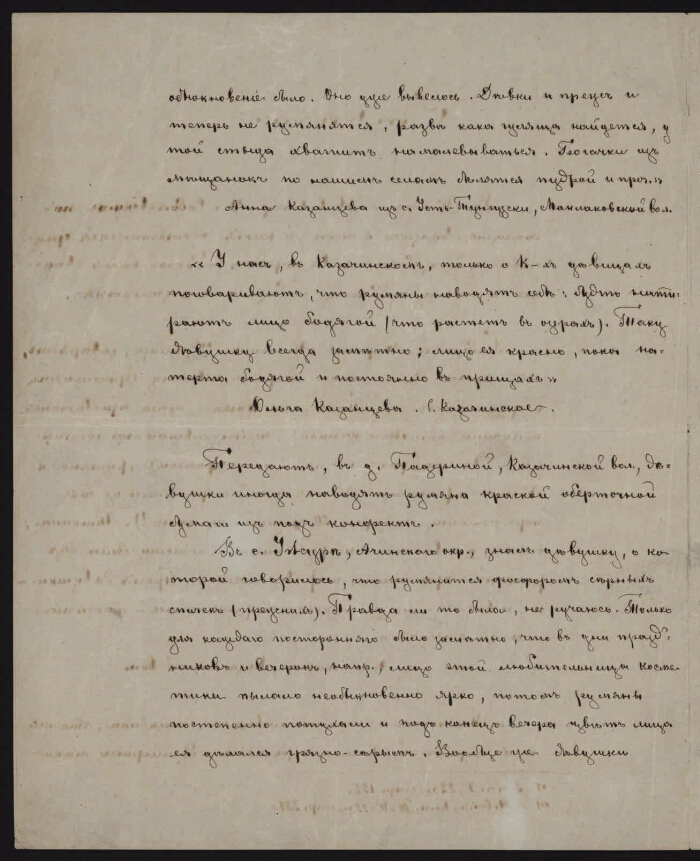 обнокновеніе было. Оно уже вывелось. Дѣвки и прежъ и
теперь не румянятся, развѣ кака гуляща найдется, у
той стыда хватитъ намалевываться. Богачки изъ
мѣщанокъ по нашимъ селамъ бѣлятся пудрой и проз.»
Анна Казанцева изъ с. Усть-Тунгузски, Маклаковской вол.
« У насъ, въ Казачинскомъ, только о К-хъ дѣвицахъ
поговариваютъ, что румяны наводятъ себѣ: будто нати-
раютъ лицо бодягой (что растетъ въ озрахъ). Таку
дѣвушку всегда замѣтно; лицо ея красно, пока на-
терта бодягой и постоянно въ прищахъ»
Ольга Казанцева. С. Казачинское.
Передаютъ, въ д. Падериной, Казачинской вол., дѣ-
вушки иногда наводятъ румяна краской оберточной
бумаги изъ подъ конфектъ.
Въ с. Ужурѣ, Ачинского окр., знали дѣвушку, о ко-
торой говорилось, что румянится фосфоромъ сѣрныхъ
спичекъ (прежнихъ). Правда ли то было, не ручаюсь. Только
для каждаго посторонняго было замѣтно, что въ дни празд-
никовъ и вечерокъ, напр., лицо этой любительницы косме-
тики пылало необыкновенно ярко, потомъ румяны
постепенно потухали и подъ конецъ вечера цвѣтъ лица
ея дѣлался грязно-сѣрымъ. Вообще же дѣвушки